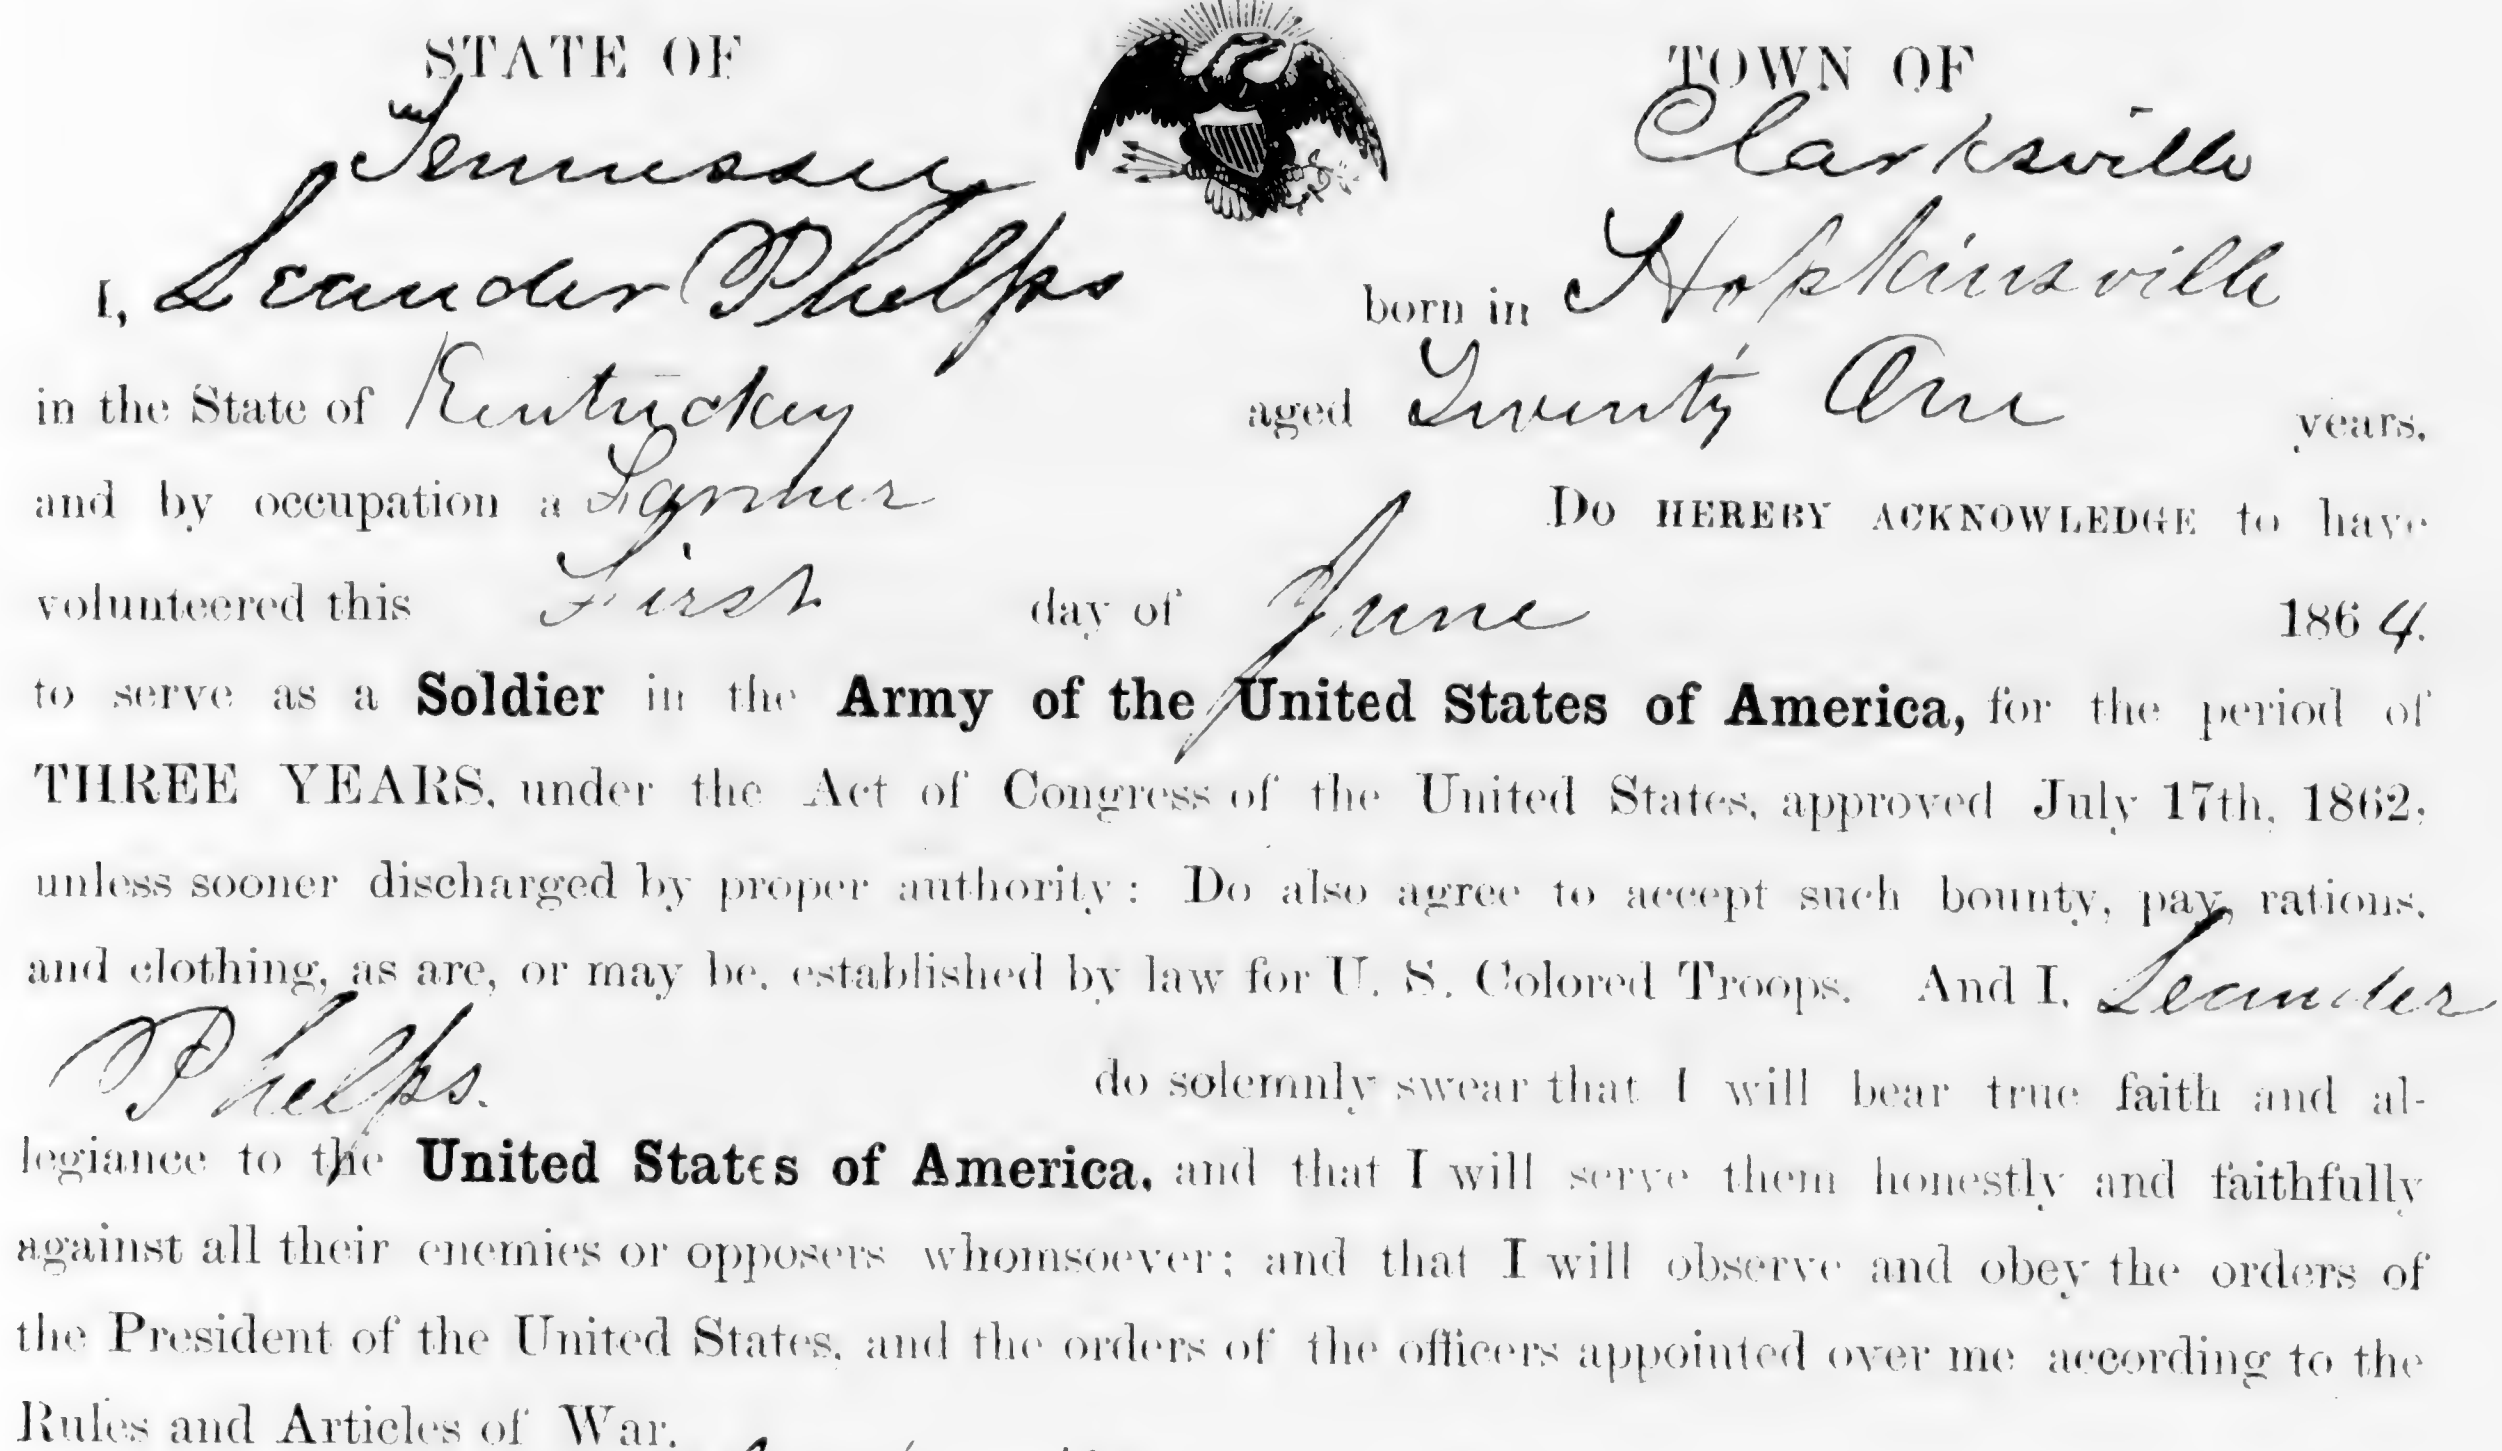 STATE OF TOWN OF
Tennessee Clarksville
I, Leander Phelps born in Hopkinsville
in the State of Kentucky aged Twenty One years,
and by occupation a Farmer Do HEREBY ACKNOWLEDGE to have
volunteered this First day of June 1864.
to serve as a Soldier in the Army of the United States of America, for the period of
THREE YEARS, under the Act of Congress of the United States, approved July 17th, 1862;
unless sooner discharged by proper authority: Do also agree to accept such bounty, pay, rations,
and clothing, as are, or may be, established by law for U. S. Colored Troops. And I, Leander
Phelps. do solemnly swear that I will bear true faith and al-
legiance to the United States of America, and that I will serve them honestly and faithfully
against all their enemies or opposers whomsoever; and that I will observe and obey the orders of
the President of the United States, and the orders of the officers appointed over me according to the
Rules and Articles of War.